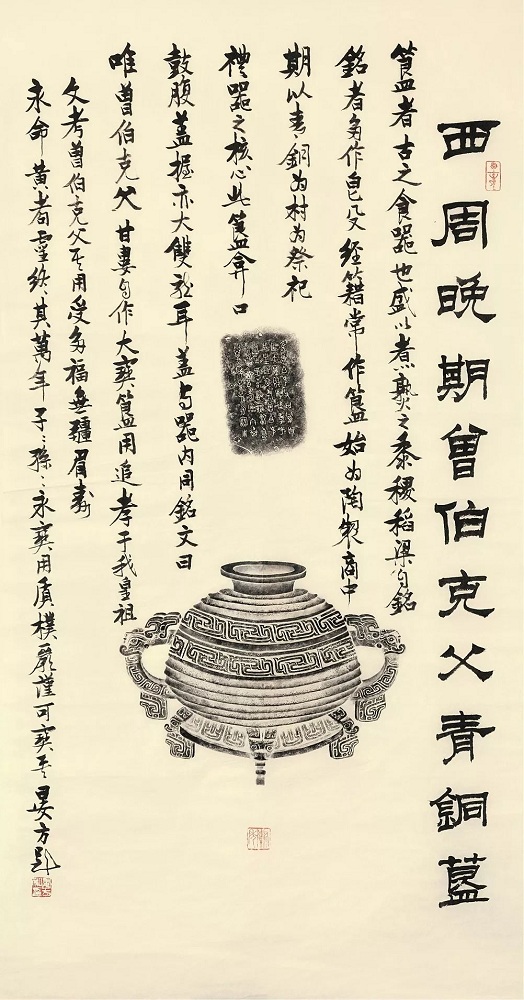 西周晚期曾伯克父青銅簋
簠者古之食器也盛以煮熟之黍稷稻粱自銘
銘者多作皀殳經籍常作簠始为陶製商中
期以青銅为材为祭祀
禮器之核心此簠弇口
鼓腹蓋握亦大雙龍耳蓋与器内用銘文曰
唯曾伯克父甘婁自作大寶簋用追孝于我皇祖
文考曾伯克父其用受多福無疆眉壽
永命黃耇霝終其萬年子〻孫〻永寶用質樸嚴謹可寶也晏方題